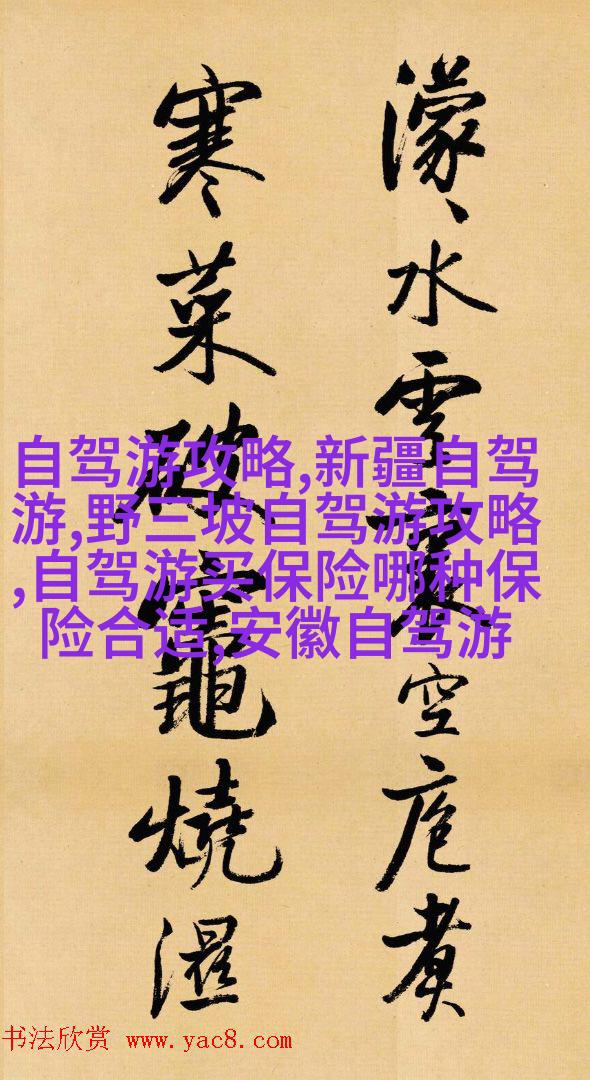 濛〻水雲裏空庖煮
寒菜破竈燒濕
自驾游攻略,新疆自驾
游,野三坡自驾游攻略
,自驾游买保险哪种保
险合适,安徽自驾游
书法欣赏 www.yac8.com